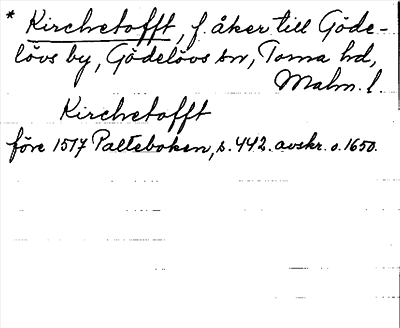 * Kirchetofft, f. åker till Göde-
lövs by, Gödelövs sn, Torna hd,
Malm. l.
Kirchetofft
före 1517 Palteboken, s. 442. avskr. o. 1650.